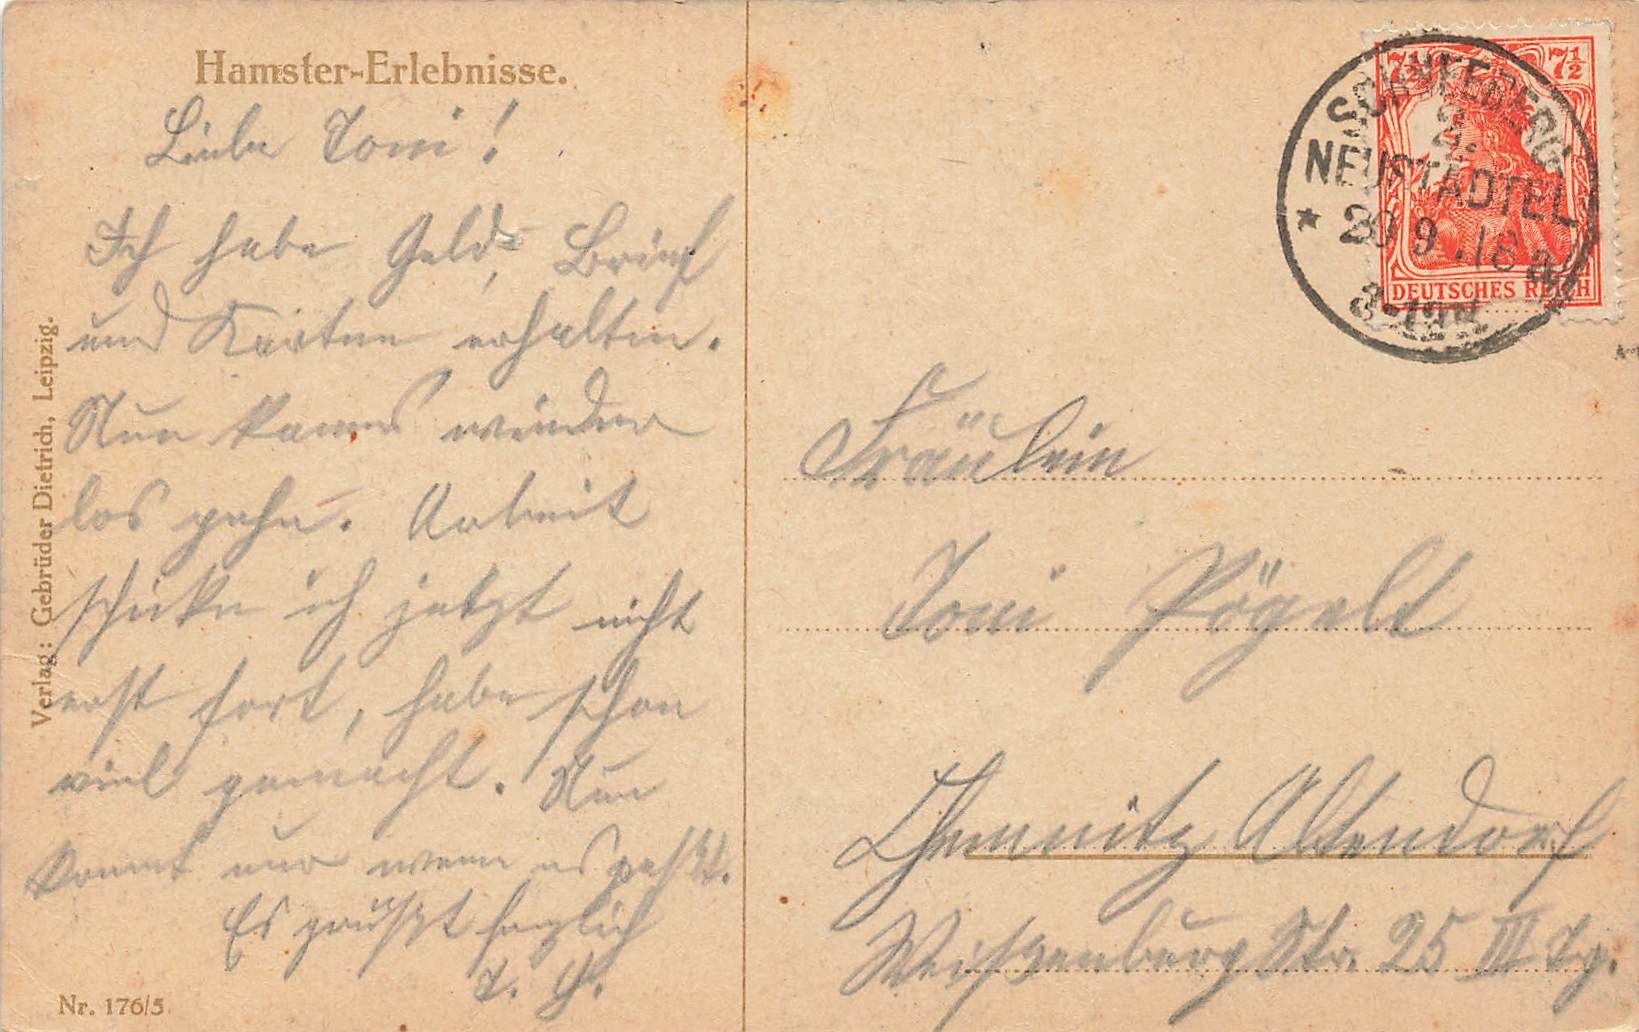 Hamster-Erlebnisse.
Liebe Toni!
Ich habe Geld, Brief
und Karten erhalten.
Nun kanns wieder
los gehn. Arbeit
schicke ich jetzt nicht
erst fort, habe schon
viel gemacht. Nun
kommt nur wenn es paßt.
Es grüßt herzlich
Verlag: Gebrüder Dietrich, Leipzig.
Nr. 176/5
7½ 7½
DEUTSCHES REICH
SCHNEEBERG
2.
NEUSTÄDTEL
* 20 9 .18
Fräulein
Toni Pögelt
Chemnitz Altendorf
Weißenburg Str. 25 III